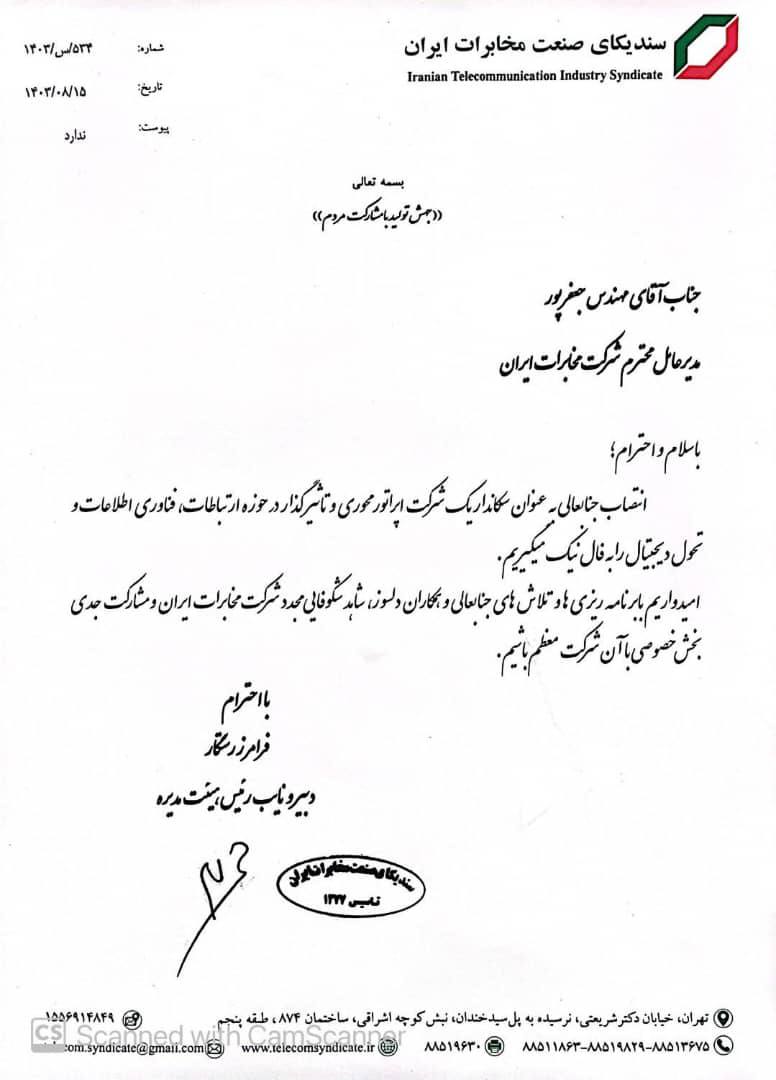 سندیکای صنعت مخابرات ایران
Iranian Telecommunication Industry Syndicate
شماره: ۵۳۴/س/۱۴۰۳
تاریخ: ۱۴۰۳/۰۸/۱۵
پیوست: ندارد
بسمه تعالی
((جهش تولید با مشارکت مردم))
جناب آقای مهندس جعفرپور
مدیرعامل محترم شرکت مخابرات ایران
باسلام و احترام؛
انتصاب جنابعالی به عنوان سکاندار یک شرکت اپراتور محوری و تاثیرگذار در حوزه ارتباطات، فناوری اطلاعات و
تحول دیجیتال را به فال نیک میگیریم.
امیدواریم با برنامه ریزی ها و تلاش های جنابعالی و همکاران دلسوز، شاهد شکوفایی مجدد شرکت مخابرات ایران و مشارکت جدی
بخش خصوصی با آن شرکت معظم باشیم.
با احترام
فرامرز رستگار
دبیر و نایب رئیس هیئت مدیره
سندیکای صنعت مخابرات ایران
تاسیس ۱۳۷۷
تهران، خیابان دکتر شریعتی، نرسیده به پل سیدخندان، نبش کوچه اشراقی، ساختمان ۸۷۴، طبقه پنجم ۱۵۵۶۹۱۴۸۴۹
۸۸۵۱۱۸۶۳-۸۸۵۱۹۸۲۹-۸۸۵۱۳۶۷۵ ۸۸۵۱۹۶۳۰ www.telecomsyndicate.ir com.syndicate@gmail.com
CS Scanned with CamScanner